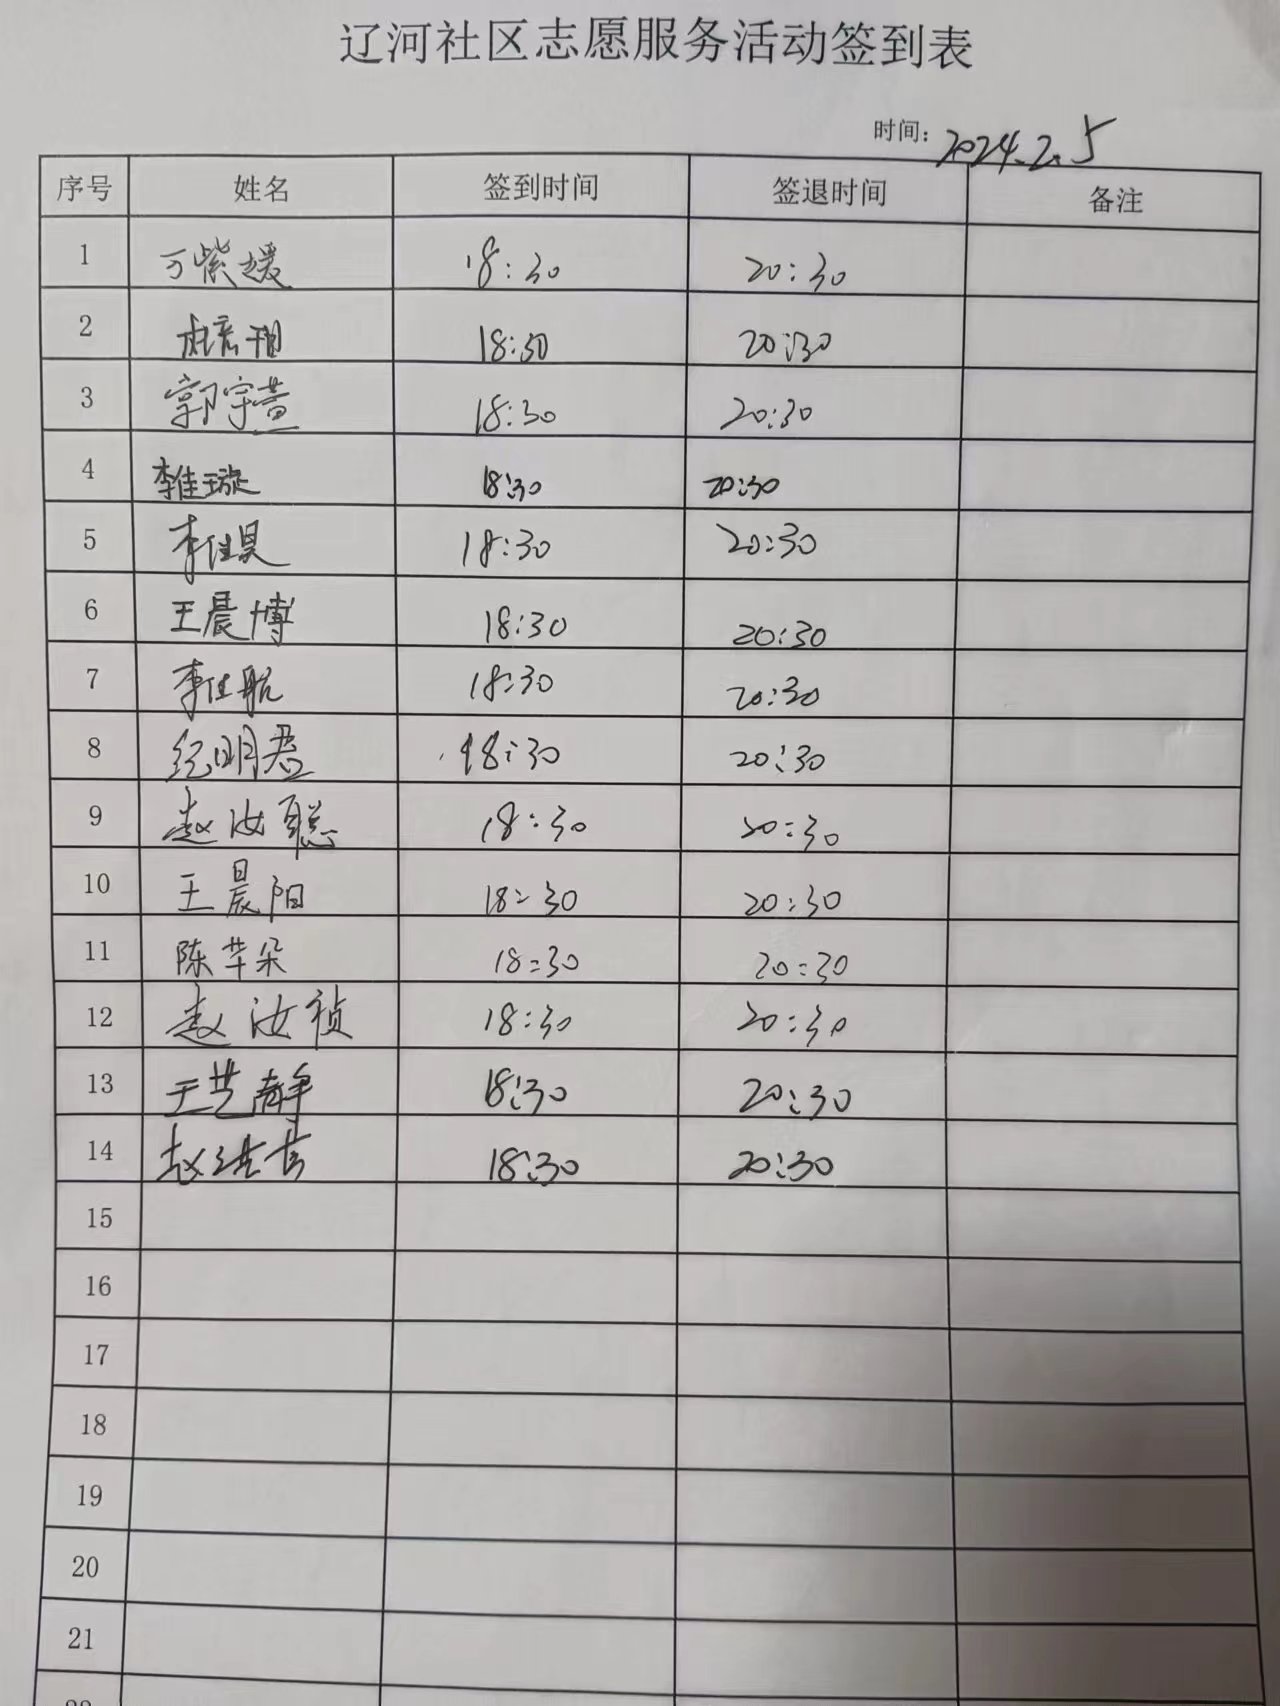 辽河社区志愿服务活动签到表
时间：2024.2.5
序号 姓名 签到时间 签退时间 备注
1 万紫媛 18:30 20:30
2 18:30 20:30
3 郭宇萱 18:30 20:30
4 李佳璇 18:30 20:30
5 李佳昊 18:30 20:30
6 王晨博 18:30 20:30
7 李佳航 18:30 20:30
8 纪明君 18:30 20:30
9 赵汝聪 18:30 20:30
10 王晨阳 18:30 20:30
11 陈芊朵 18:30 20:30
12 赵汝祯 18:30 20:30
13 王艺静 18:30 20:30
14 赵 18:30 20:30
15
16
17
18
19
20
21